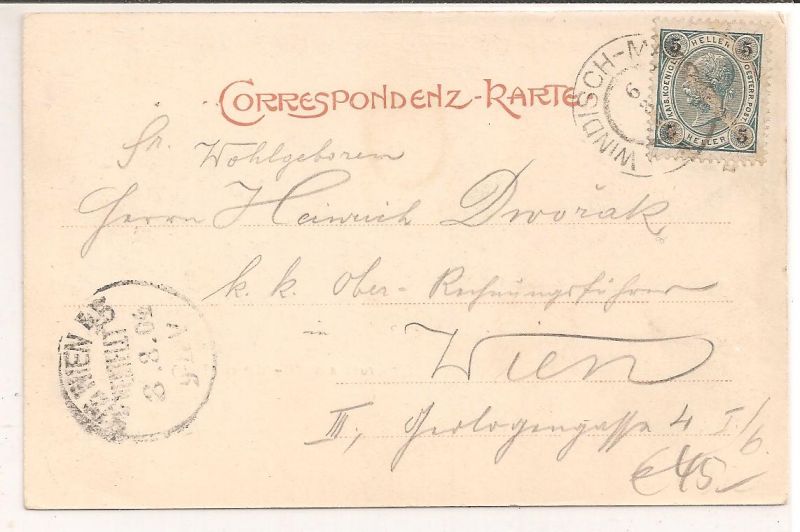 CORRESPONDENZ-KARTE
5 HELLER 5
KAIS. KOENIGL. OESTERR. POST
5 HELLER 5
WINDISCH-M
6
Sr. Wohlgeboren
Herrn Heinrich Dwořak
k. k. Ober-Rechnungsführer
in
Wien
III, Geologengasse 4 I/6
€45-
WIEN
8.8.04